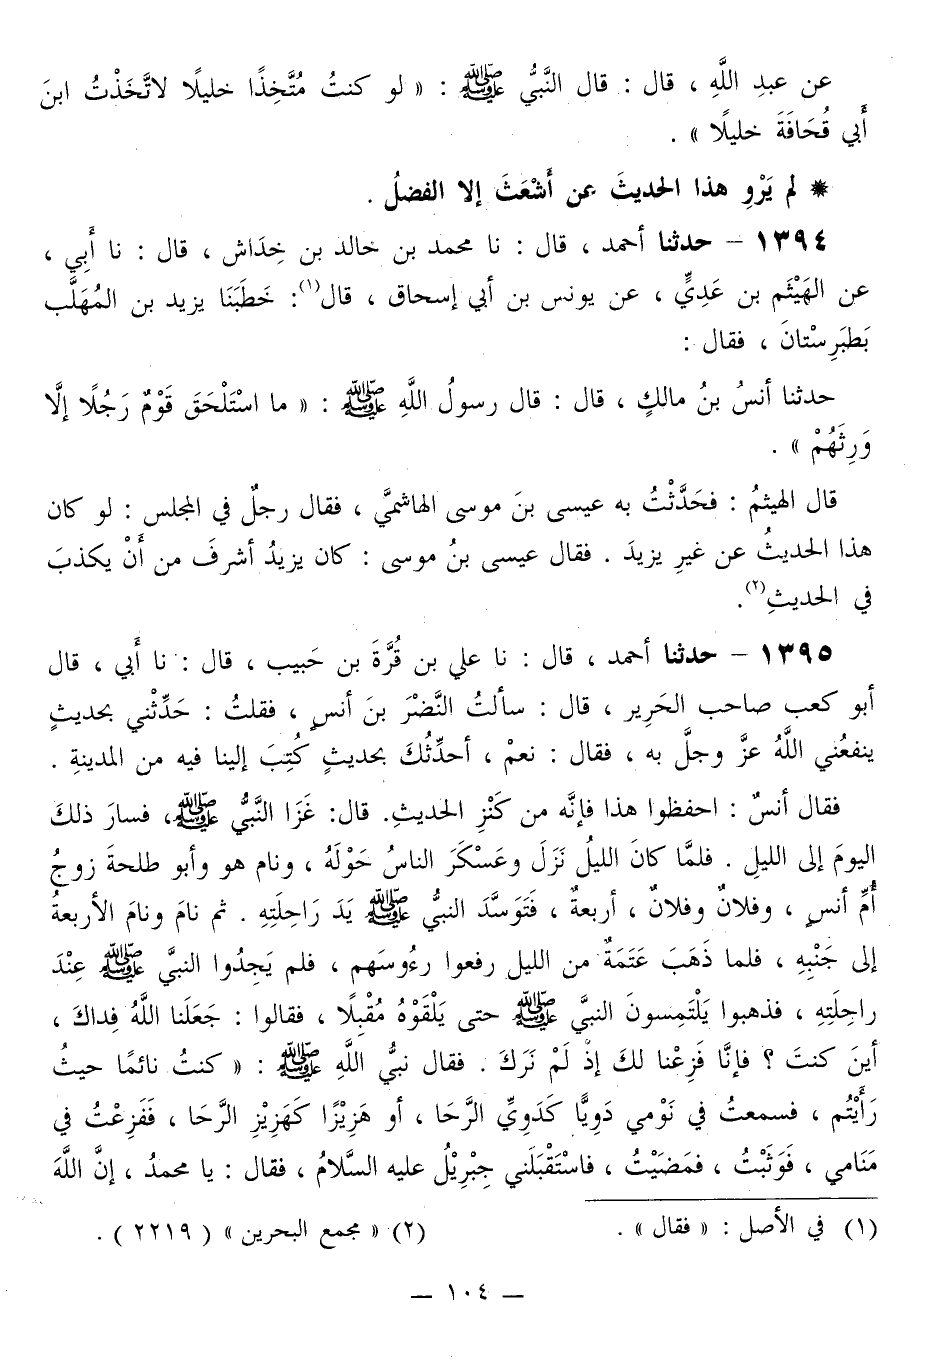 عن عبدِ اللَّهِ ، قال : قال النَّبيُّ ﷺ : « لو كنتُ مُتَّخِذًا خليلًا لاتَّخَذْتُ ابنَ
أَبي قُحَافَةَ خليلًا » .
✵ لم يَرْوِ هذا الحديثَ عن أَشْعَثَ إلا الفضلُ .
١٣٩٤ – حدثنا أحمد ، قال : نا محمد بن خالد بن خِدَاش ، قال : نا أَبِي ،
عن الهَيْثَم بن عَدِيٍّ ، عن يونس بن أبي إسحاق ، قال(١): خَطَبَنَا يزيد بن المُهَلَّب
بَطَبَرِسْتانَ ، فقال :
حدثنا أنسُ بنُ مالكٍ ، قال : قال رسولُ اللَّهِ ﷺ : « ما اسْتَلْحَقَ قَوْمٌ رَجُلًا إلَّا
وَرِثَهُمْ » .
قال الهيثمُ : فحَدَّثْتُ به عيسى بنَ موسى الهاشميَّ ، فقال رجلٌ في المجلس : لو كان
هذا الحديثُ عن غيرِ يزيدَ . فقال عيسى بنُ موسى : كان يزيدُ أشرفَ من أَنْ يكذبَ
في الحديثِ(٢).
١٣٩٥ – حدثنا أحمد ، قال : نا علي بن قُرَّةَ بن حَبيب ، قال : نا أَبي ، قال
أبو كعب صاحب الحَرِير ، قال : سألتُ النَّضْرَ بنَ أنسٍ ، فقلتُ : حَدِّثْني بحديثٍ
ينفعُني اللَّهُ عزَّ وجلَّ به ، فقال : نعمْ ، أحدِّثُكَ بحديثٍ كُتِبَ إلينا فيه من المدينةِ .
فقال أنسٌ : احفظوا هذا فإنَّه من كَنْزِ الحديثِ. قال: غَزَا النَّبيُّ ﷺ، فسارَ ذلكَ
اليومَ إلى الليلِ . فلمَّا كانَ الليلُ نَزَلَ وعَسْكَرَ الناسُ حَوْلَهُ ، ونام هو وأبو طلحةَ زوجُ
أُمِّ أنسٍ ، وفلانٌ وفلانٌ ، أربعةٌ ، فتَوَسَّدَ النبيُّ ﷺ يَدَ رَاحِلَتِهِ . ثم نامَ ونامَ الأربعةُ
إلى جَنْبِهِ ، فلما ذَهَبَ عَتَمَةٌ من الليل رفعوا رءُوسَهم ، فلم يَجِدُوا النبيَّ ﷺ عِنْدَ
راحِلَتِهِ ، فذهبوا يَلْتَمِسونَ النبيَّ ﷺ حتى يَلْقَوْهُ مُقْبِلًا ، فقالوا : جَعَلَنا اللَّهُ فِداكَ ،
أينَ كنتَ ؟ فإنَّا فَزِعْنا لكَ إذْ لَمْ نَرَكَ . فقال نبيُّ اللَّهِ ﷺ : « كنتُ نائمًا حيثُ
رَأَيْتُم ، فسمعتُ في نَوْمي دَويًّا كَدَوِيِّ الرَّحَا ، أو هَزِيْزًا كَهَزِيْزِ الرَّحَا ، فَفَزِعْتُ في
مَنَامي ، فَوَثَبْتُ ، فمَضَيْتُ ، فاسْتَقْبَلَني جِبْرِيْلُ عليه السَّلامُ ، فقال : يا محمدُ ، إنَّ اللَّهَ
(١) في الأصل : « فقال » .
(٢) « مجمع البحرين » ( ٢٢١٩ ) .
— ١٠٤ —